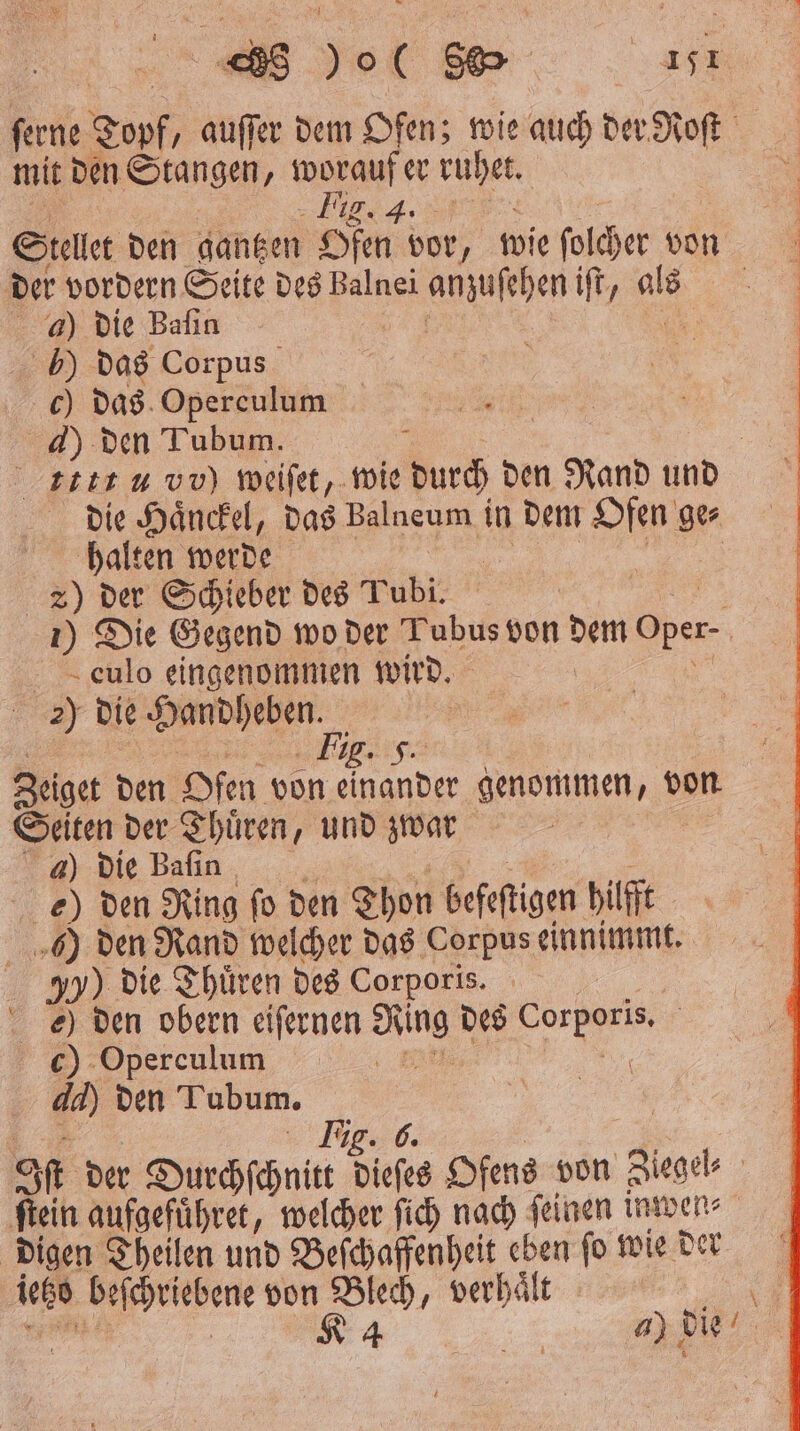 )o( 151
ſerne Topf, auſſer dem Ofen; wie auch der Roſt
mit den Stangen, worauf er ruhet.
Fig. 4.
Stellet den gantzen Ofen vor, wie ſolcher von
der vordern Seite des Balnei anzuſehen iſt, als
a) die Baſin
b) das Corpus
c) das Operculum
d) den Tubum.
tttt u vv) weiſet, wie durch den Rand und
die Haͤnckel, das Balneum in dem Ofen ge⸗
halten werde
z) der Schieber des Tubi.
1) Die Gegend wo der Tubus von dem Oper-
culo eingenommen wird.
2) die Handheben.
Fig. 5.
Zeiget den Ofen von einander genommen, von
Seiten der Thuͤren, und zwar
a) die Baſin
e) den Ring ſo den Thon befeſtigen hilfft
6) den Rand welcher das Corpus einnimmt.
yy) die Thuͤren des Corporis.
e) den obern eiſernen Ring des Corporis.
c) Operculum
dd) den Tubum.
Fig. 6.
Iſt der Durchſchnitt dieſes Ofens von Ziegel⸗
ſtein aufgefuͤhret, welcher ſich nach ſeinen inwen⸗
digen Theilen und Beſchaffenheit eben ſo wie der
ietzo beſchriebene von Blech, verhaͤlt
K 4 a) die